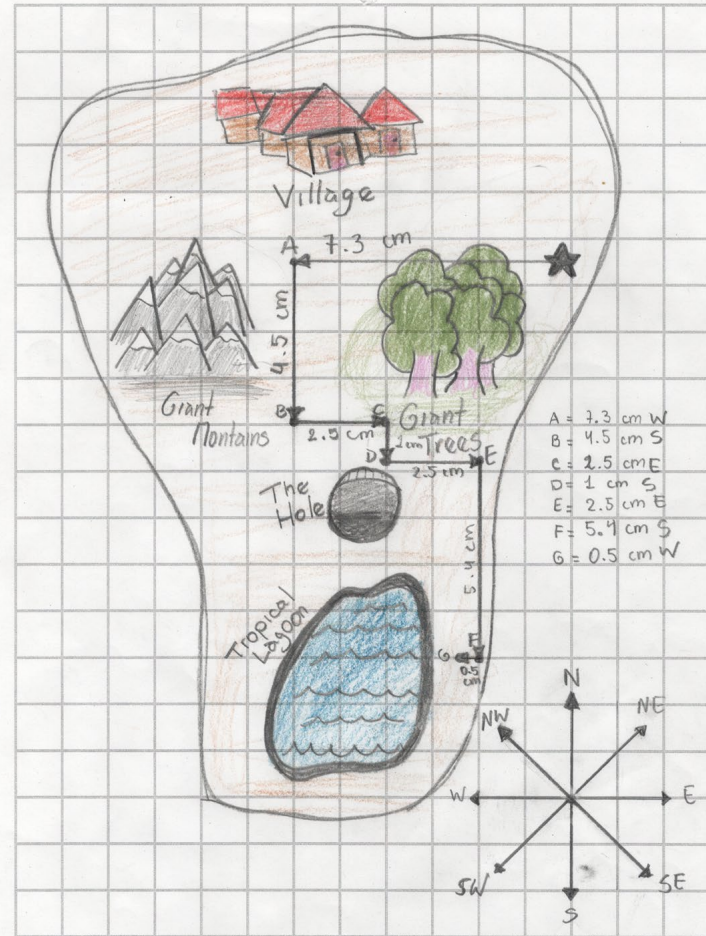 Village
A 7.3 cm
4.5 cm
Giant
Montains
B
2.5 cm
C
Giant
Trees
1cm
D
2.5 cm
E
The
Hole
5.4 cm
Tropical
Lagoon
F
G
0.5
cm
A = 7.3 cm W
B = 4.5 cm S
C = 2.5 cm E
D = 1 cm S
E = 2.5 cm E
F = 5.4 cm S
G = 0.5 cm W
N
NW
NE
W
E
SW
SE
S